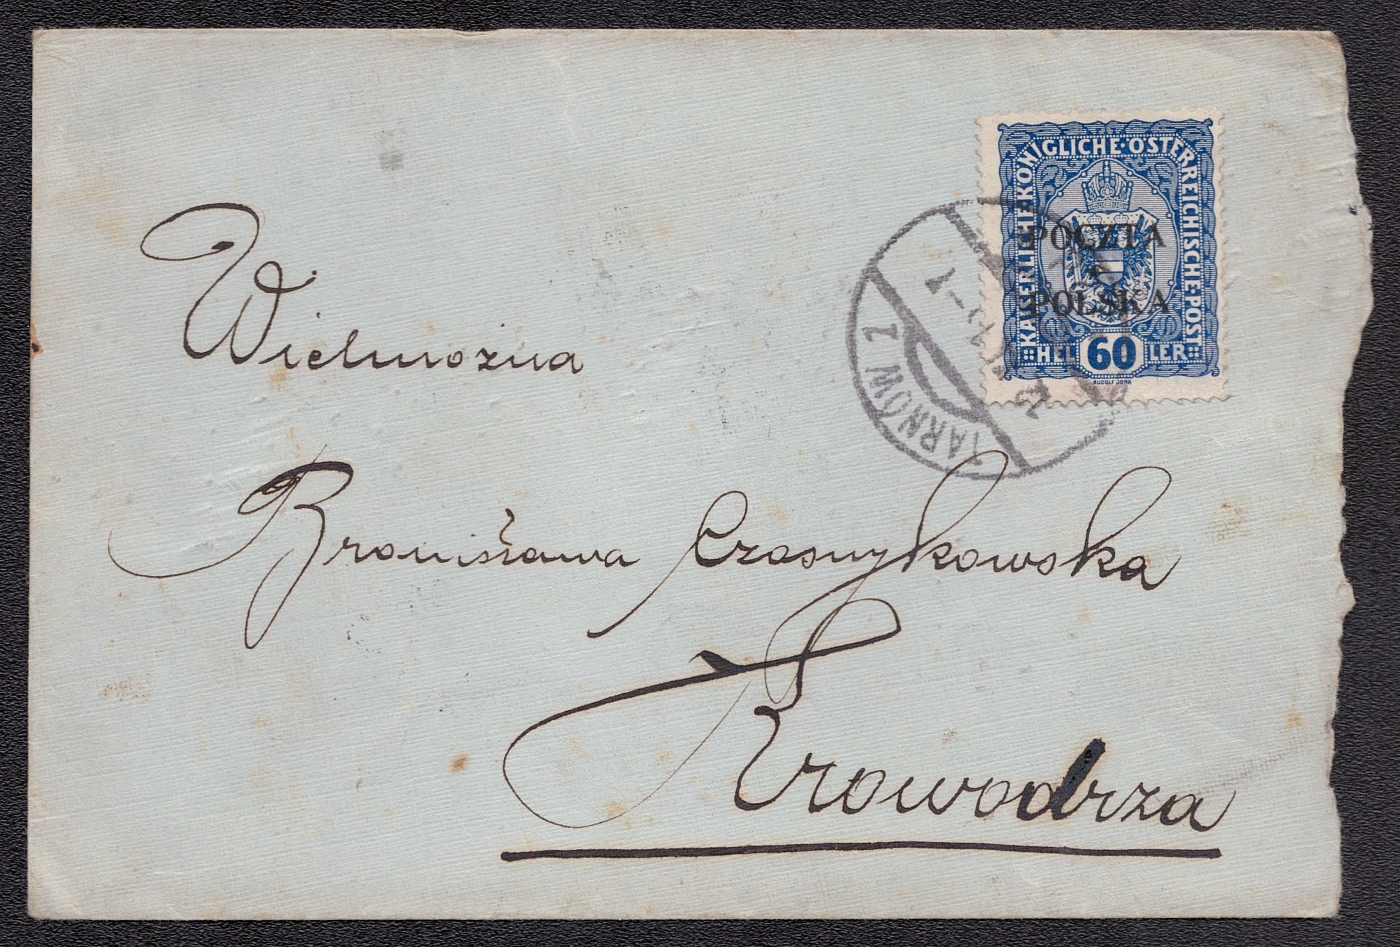 KAISERLICHE·KÖNIGLICHE·ÖSTERREICHISCHE·POST
POCZTA
POLSKA
HELLER
60
RUDOLF JUNK
TARNÓW 1
Wielmożna
Bronisława Czasnykowska
Krowodrza